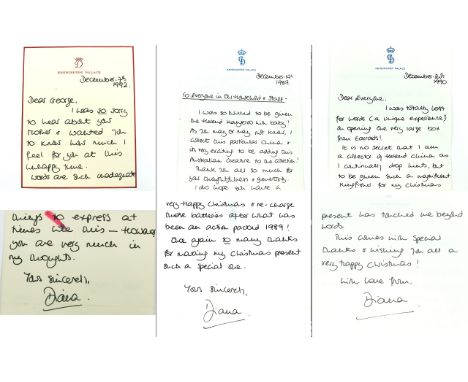 KENSINGTON PALACE
December 7th
1992.
Dear George,
I was so sorry
to hear about your
mother & wanted you
to know how much I
feel for you at this
unhappy time.
Words are such inadequate
things to express at
times like this - however
you are very much in
my thoughts.
Yours sincerely,
Diana.
KENSINGTON PALACE
December
1989
To Everyone in
I was so thrilled to be given
the Herend Kangaroo with baby!
As you may or may not know, I
collect this particular china &
it's very exciting to be adding this
Australian creature to the collection!
Thank you all so much for
your thoughtfulness & generosity.
I do hope you have a
very Happy Christmas & re-charge
those batteries after what has
been an action packed 1989!
Once again so many thanks
for making my Christmas present
such a special one.
Yours sincerely,
Diana.
KENSINGTON PALACE
December
1990.
Dear Everyone,
I was totally lost
for words (a unique experience)
on opening the very large box
from Everard's!
It is no secret that I am
a collector of Herend china and
I continually drop hints, but
to be given such a magnificent
for my Christmas
present has touched me beyond
words.
This comes with special
thanks & wishing you all a
very happy Christmas!
with love from,
Diana.